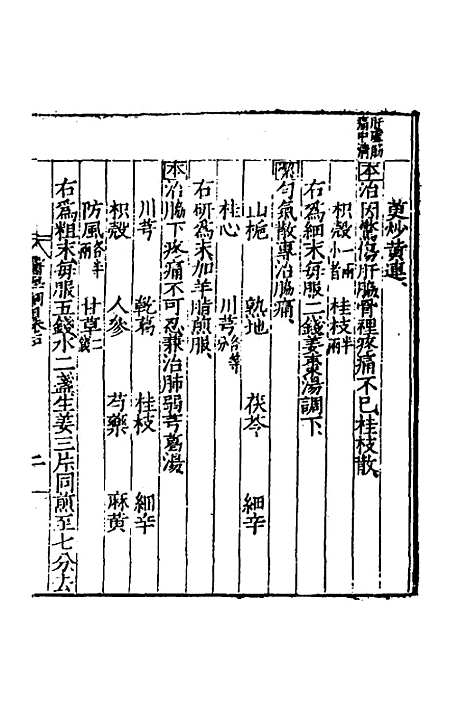 萸炒黄連
肝虚筋
痛中清
本治因驚傷肝脇骨裡疼痛不已桂枝散
枳殻一兩小者 桂枝半兩
右爲細末毎服二錢姜棗湯調下
匀氣散專治脇痛
山梔 熟地 茯苓 細辛
桂心 川芎各等分
右研爲末加羊脂煎服
本治脇下疼痛不可忍兼治肺弱芎葛湯
川芎 乾葛 桂枝 細辛
枳殻 人參 芍藥 麻黄
防風各半兩 甘草二錢
右爲粗末毎服五錢水二盞生姜三片同煎至七分去